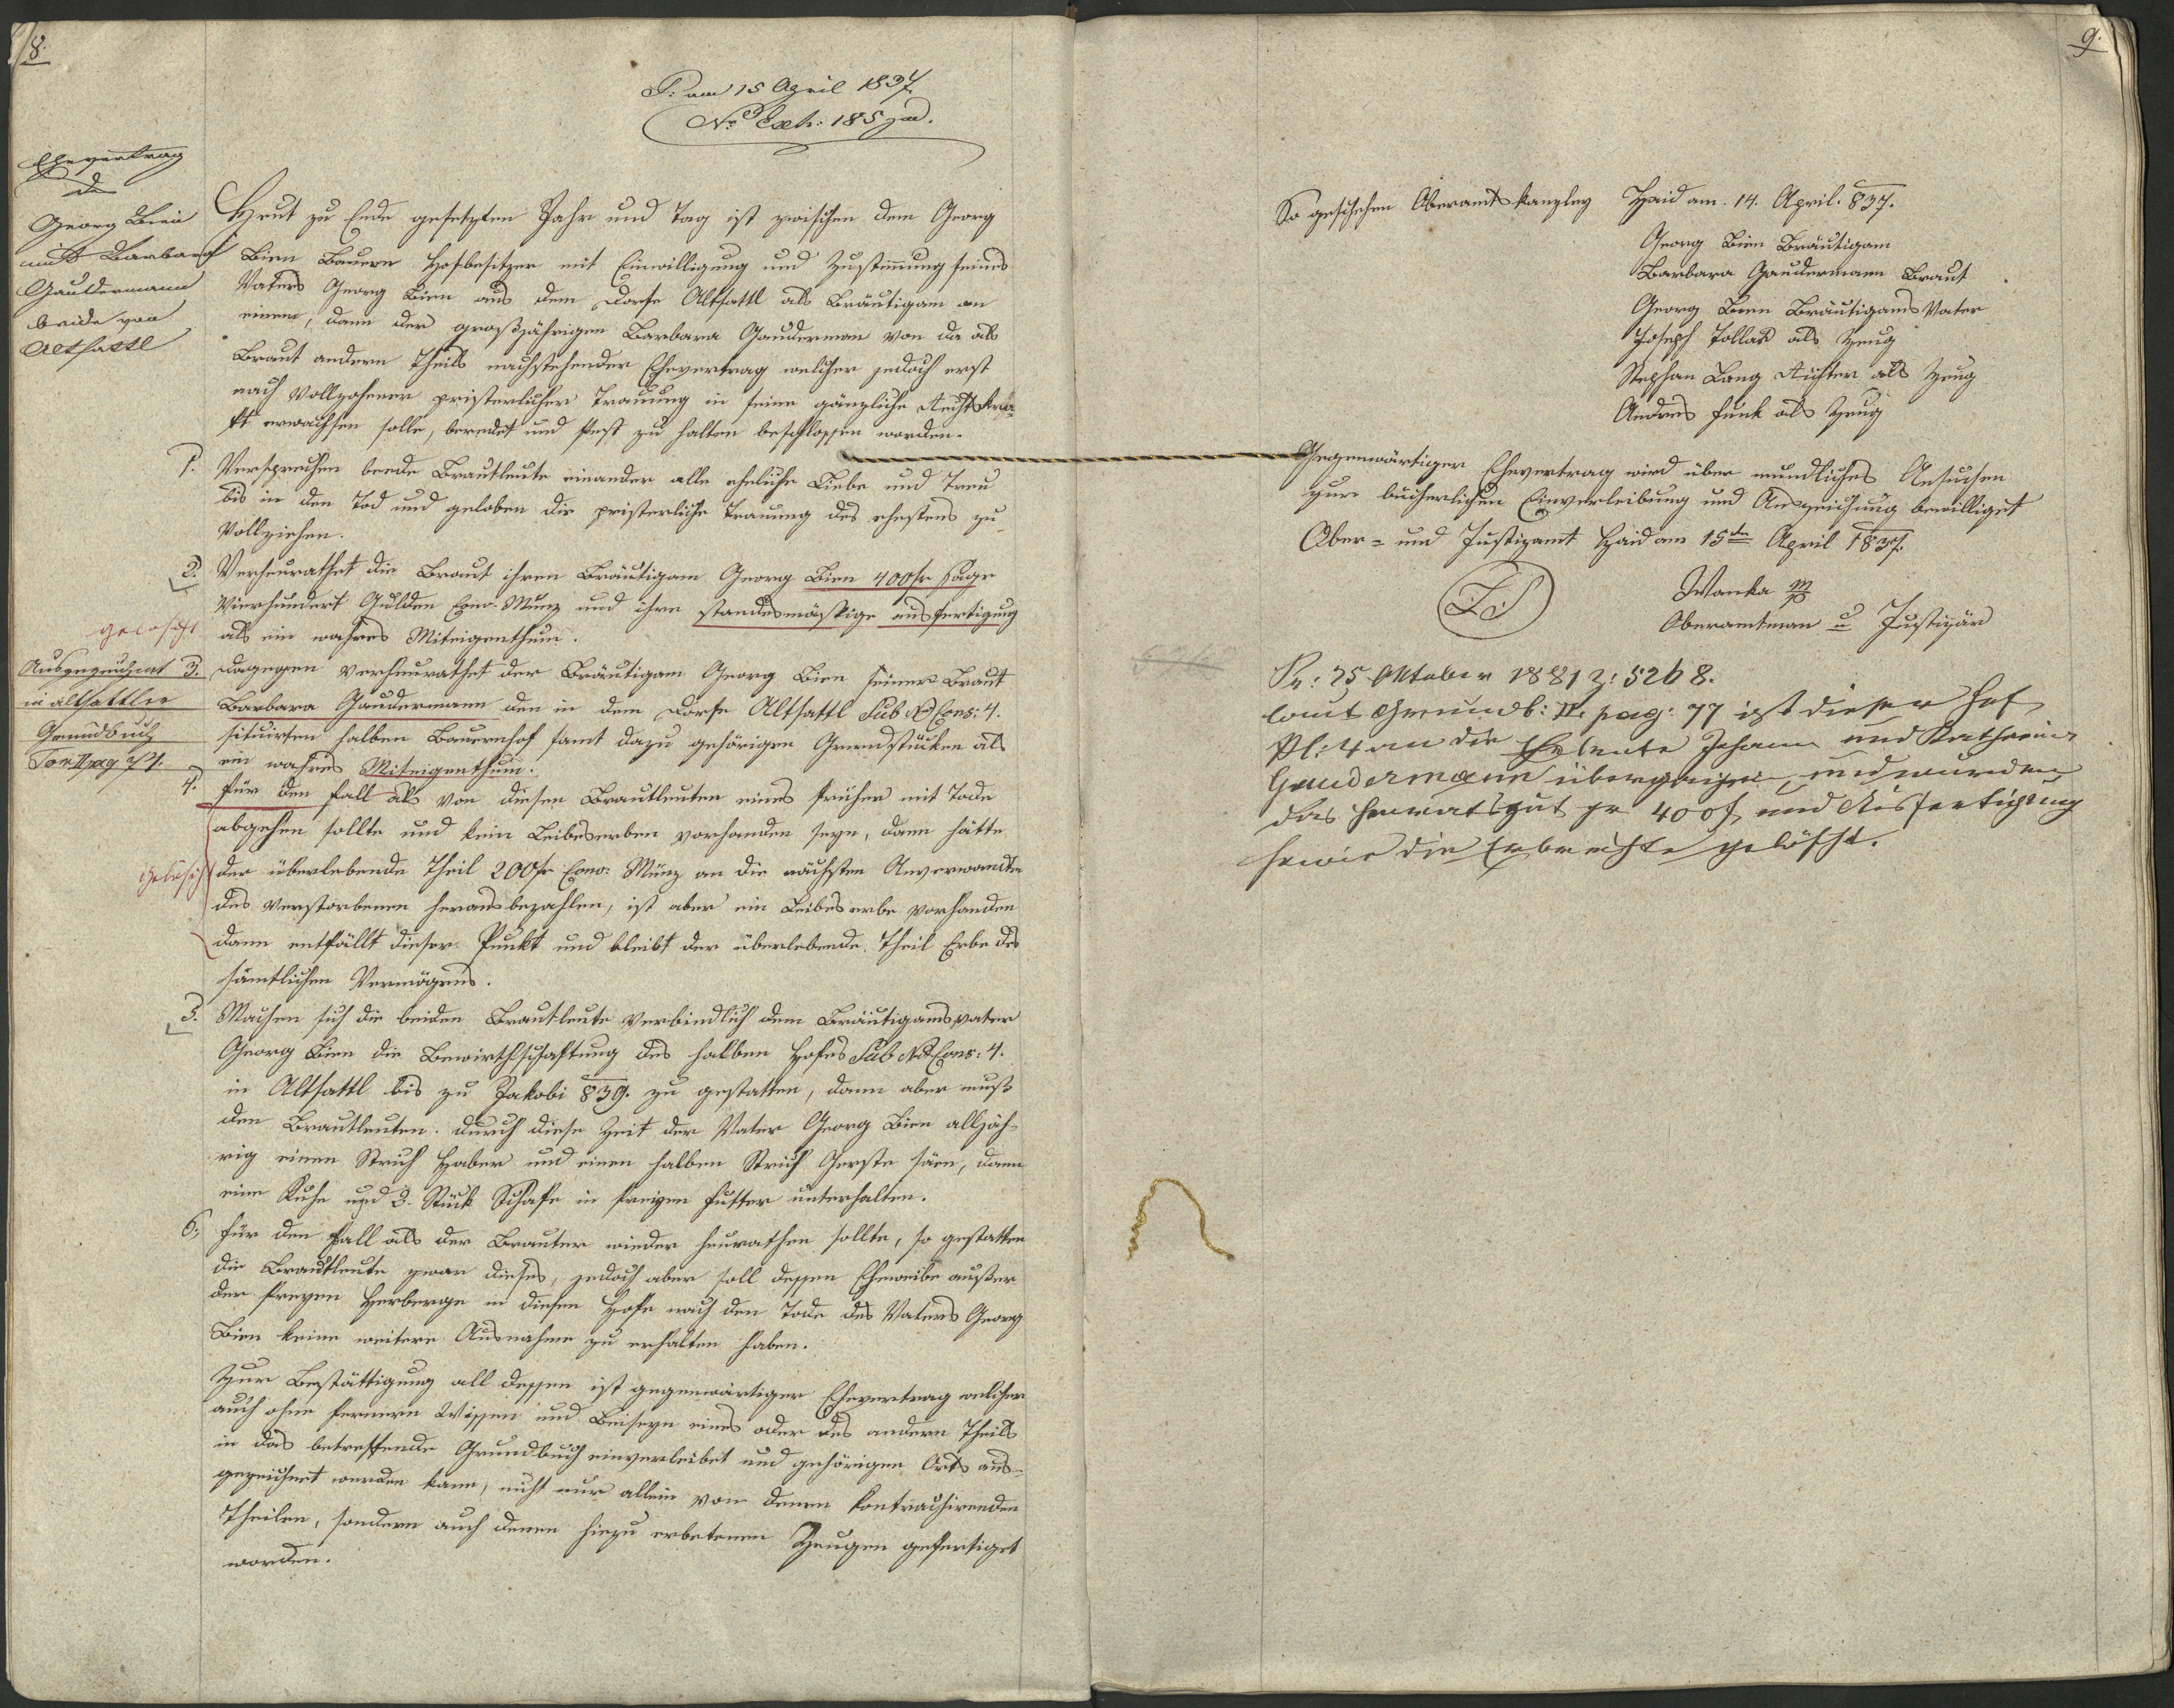 8.
P: am 15 April 1837.
Nro Exh: 185 jud.
Ehevertrag
des
Georg Bien
mit Barbara
Gaudermann
beide von
Altsattl
Heut zu Ende gesetzten Jahr und Tag ist zwischen dem Georg
Bien Bauern Hofbesitzer mit Einwilligung und Zustimung seines
Vaters Georg Bien aus dem Dorfe Altsattl als Bräutigam an
einem, dann der großjährigen Barbara Gauderman von da als
Braut andern Theils nachstehender Ehevertrag welcher jedoch erst
nach Vollzohener pristerlicher Trauung in seine gänzliche Rechtskra-
ft erwachsen solle, beredet und fest zu halten beschlossen worden.
1. Versprechen beede Brautleute einander alle eheliche Liebe und Treu
bis in den Tod und geloben die pristerliche Trauung des ehestens zu
Vollziehen.
2. Verheurathet die Braut ihren Bräutigam Georg Bien 400 fr sage
Vierhundert Gulden Conv. Münz und ihre standesmäßige ausfertigung
gelöscht
als ein wahres Miteigenthum.
Ausgezeichnet
in altsattler
Grundbuch
Tom II pag 71.
3. dagegen verheurathet der Bräutigam Georg Bien seiner Braut
Barbara Gaudermann den in dem Dorfe Altsattl Sub No Cons: 4.
situirten halben Bauernhof samt dazu gehörigen Grundstücken als
ein wahres Miteigenthum.
4. für den fall als von diesen Brautleuten eines früher mit Tode
abgehen sollte und kein Leibeserben vorhanden seyn, dann hätte
gelöscht
der überlebende Theil 200 fr Conv: Münz an die nächsten Anverwandte
des verstorbenen herausbezahlen, ist aber ein Leibeserbe vorhanden
dann entfällt dieser Punkt und bleibt der überlebende Theil Erbe des
sämtlichen Vermögens.
5. Machen sich die beiden Brautleute verbindlich dem Bräutigamsvater
Georg Bien die Bewirthschaftung des halben Hofes Sub No Cons: 4.
in Altsattl bis zu Jakobi 839. zu gestatten, dann aber muß
den Brautleuten durch diese Zeit der Vater Georg Bien alljäh-
rig einen Strich Haber und einen halben Strich Gerste säen, dann
eine Kuhe und 2. Stück Schafe in freyen futter unterhalten.
6. für den fall als der Brauter wieder heurathen sollte, so gestatten
die Brautleute zwar dieses, jedoch aber soll dessen Eheweibe außer
der freyen Herberge in diesen Hofe nach den Tode des Vaters Georg
Bien keine weitere Ausnahme zu erhalten haben.
Zur Bestättigung all dessen ist gegenwärtiger Ehevertrag welcher
auch ohne fernern Wissen und Beiseyn eines oder des andern Theils
in das betreffende Grundbuch einverleibet und gehörigen Orts aus-
gezeichnet werden kann, nicht nur allein von denen kontrachirenden
Theilen, sondern auch denen hiezu erbetenen Zeugen gefertiget
worden.
9.
So geschehen Oberamtskanzley Haid am. 14. April. 837.
Georg Bien Bräutigam
Barbara Gaudermann Braut
Georg Bien Bräutigams Vater
Joseph Tollar als Zeug
Stephan Lang Richter als Zeug
Andres Funk als Zeug
Gegenwärtiger Ehevertrag wird über mündliches Ansuchen
zur bücherlichen Einverleibung und Auszeichung bewilliget
Ober- und Justizamt Haid am 15ten April 1837.
LS
Wanka mp
Oberamtman u Justizär
5268
Pr: 25 Oktober 1881 Z: 5268.
laut Grundb: II. pag: 77 ist dieser Hof
die Eheleute Johann und Katharina
Gaudermann übergegangen und wurden
das Heuratsgut pr 400 f und Ausfertigung
sowie die Erbrechte gelöscht.